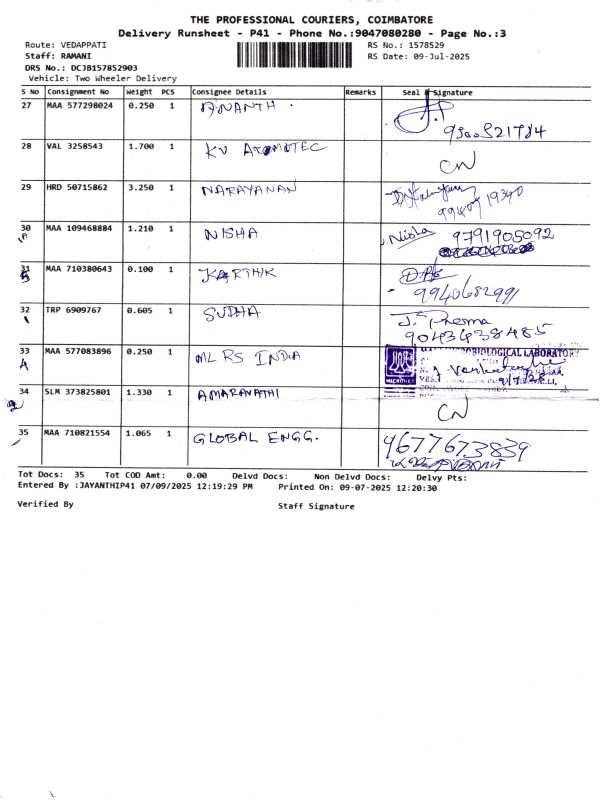 THE PROFESSIONAL COURIERS, COIMBATORE
Delivery Runsheet - P41 - Phone No.:9047080280 - Page No.:3
Route: VEDAPPATI RS No.: 1578529
Staff: RAMANI RS Date: 09-Jul-2025
DRS No.: DCJB157852903
Vehicle: Two Wheeler Delivery
S No Consignment No Weight PCS Consignee Details Remarks Seal & Signature
27 MAA 577298024 0.250 1 ANANTH
28 VAL 3258543 1.700 1 KV AXOMOTEC CN
29 HRD 50715862 3.250 1 NARAYANAN
30 MAA 109468884 1.210 1 NISHA Nisha 9791905092
31 MAA 710380643 0.100 1 KARTHIK 9940682991
32 TRP 6909767 0.605 1 SUDHA 9043438485
33 MAA 577083896 0.250 1 ML RS INDIA MICROBIOLOGICAL LABORATORY
34 SLM 373825801 1.330 1 AMARAVATHI CN
35 MAA 710821554 1.065 1 GLOBAL ENGG. 9677673839
Tot Docs: 35 Tot COD Amt: 0.00 Delvd Docs: Non Delvd Docs: Delvy Pts:
Entered By :JAYANTHIP41 07/09/2025 12:19:29 PM Printed On: 09-07-2025 12:20:30
Verified By Staff Signature